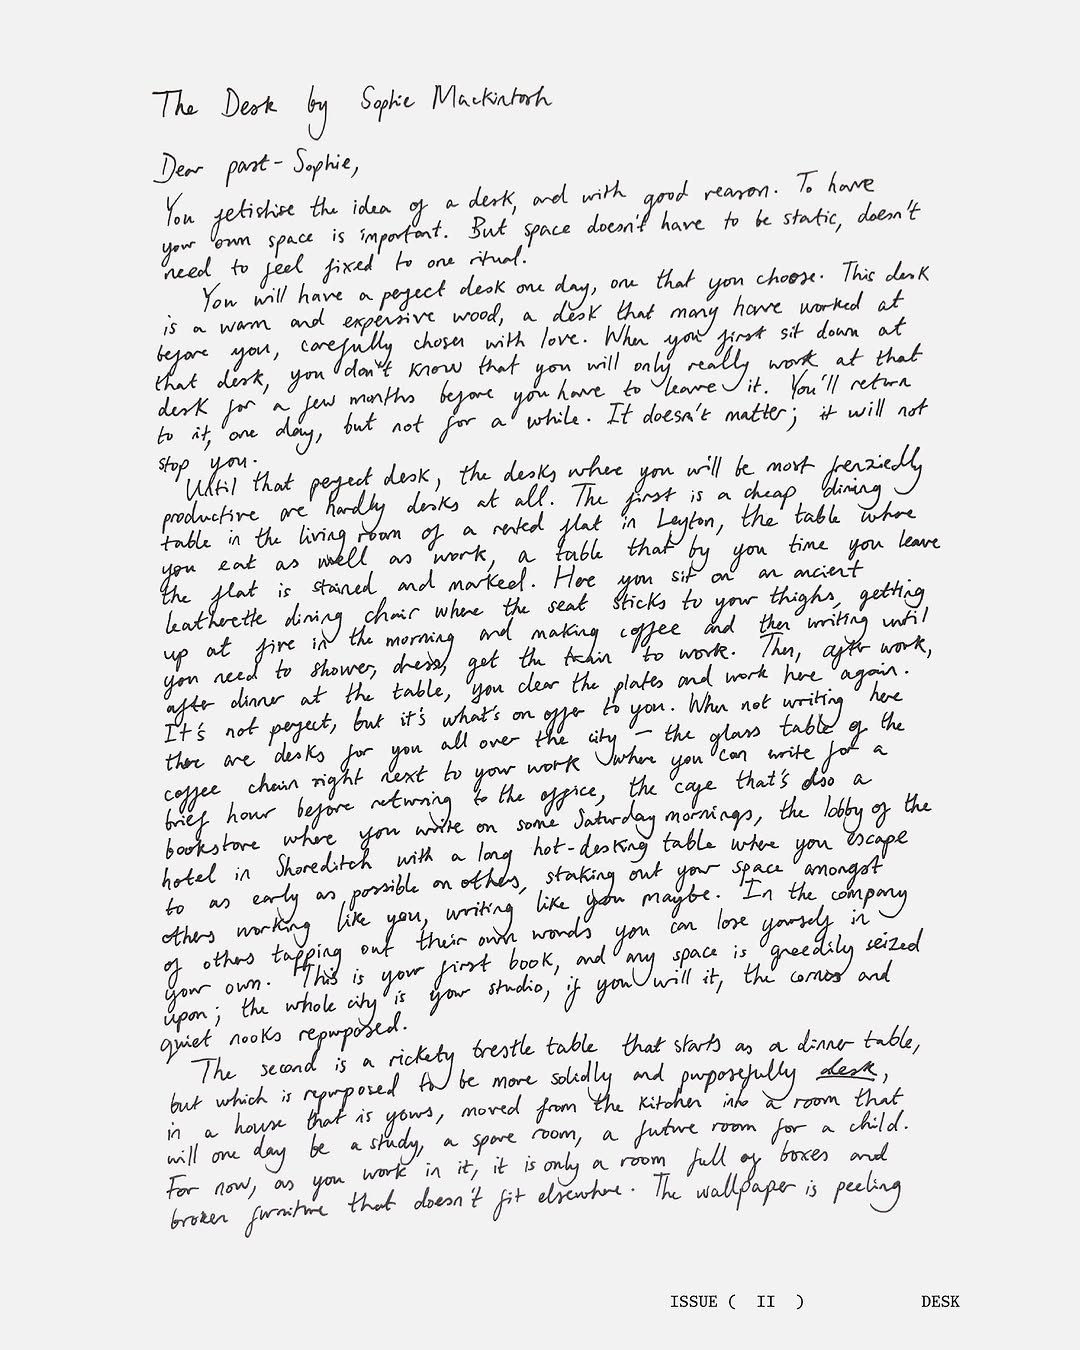 The Desk by Sophie Mackintosh
Dear past-Sophie,
You fetishise the idea of a desk, and with good reason. To have
your own space is important. But space doesn't have to be static, doesn't
need to feel fixed to one ritual.
You will have a perfect desk one day, one that you choose. This desk
is a warm and expensive wood, a desk that many have worked at
before you, carefully chosen with love. When you first sit down at
that desk, you don't know that you will only really work at that
desk for a few months before you have to leave it. You'll return
to it, one day, but not for a while. It doesn't matter; it will not
stop you.
Until that perfect desk, the desks where you will be most frenziedly
productive are hardly desks at all. The first is a cheap dining
table in the living room of a rented flat in Leyton, the table where
you eat as well as work, a table that by you time you leave
the flat is stained and marked. Here you sit on an ancient
leatherette dining chair where the seat sticks to your thighs, getting
up at five in the morning and making coffee and then writing until
you need to shower, dress, get the train to work. Then, after work,
after dinner at the table, you clear the plates and work here again.
It's not perfect, but it's what's on offer to you. When not writing here
there are desks for you all over the city – the glass table of the
coffee chain right next to your work where you can write for a
brief hour before returning to the office, the cafe that's also a
bookstore where you write on some Saturday mornings, the lobby of the
hotel in Shoreditch with a long hot-desking table where you escape
to as early as possible on others, staking out your space amongst
others working like you, writing like you maybe. In the company
of others tapping out their own words you can lose yourself in
your own. This is your first book, and any space is greedily seized
upon; the whole city is your studio, if you will it, the corners and
quiet nooks repurposed.
The second is a rickety trestle table that starts as a dinner table,
but which is repurposed to be more solidly and purposefully desk,
in a house that is yours, moved from the kitchen into a room that
will one day be a study, a spare room, a future room for a child.
For now, as you work in it, it is only a room full of boxes and
broken furniture that doesn't fit elsewhere. The wallpaper is peeling
ISSUE ( II ) DESK